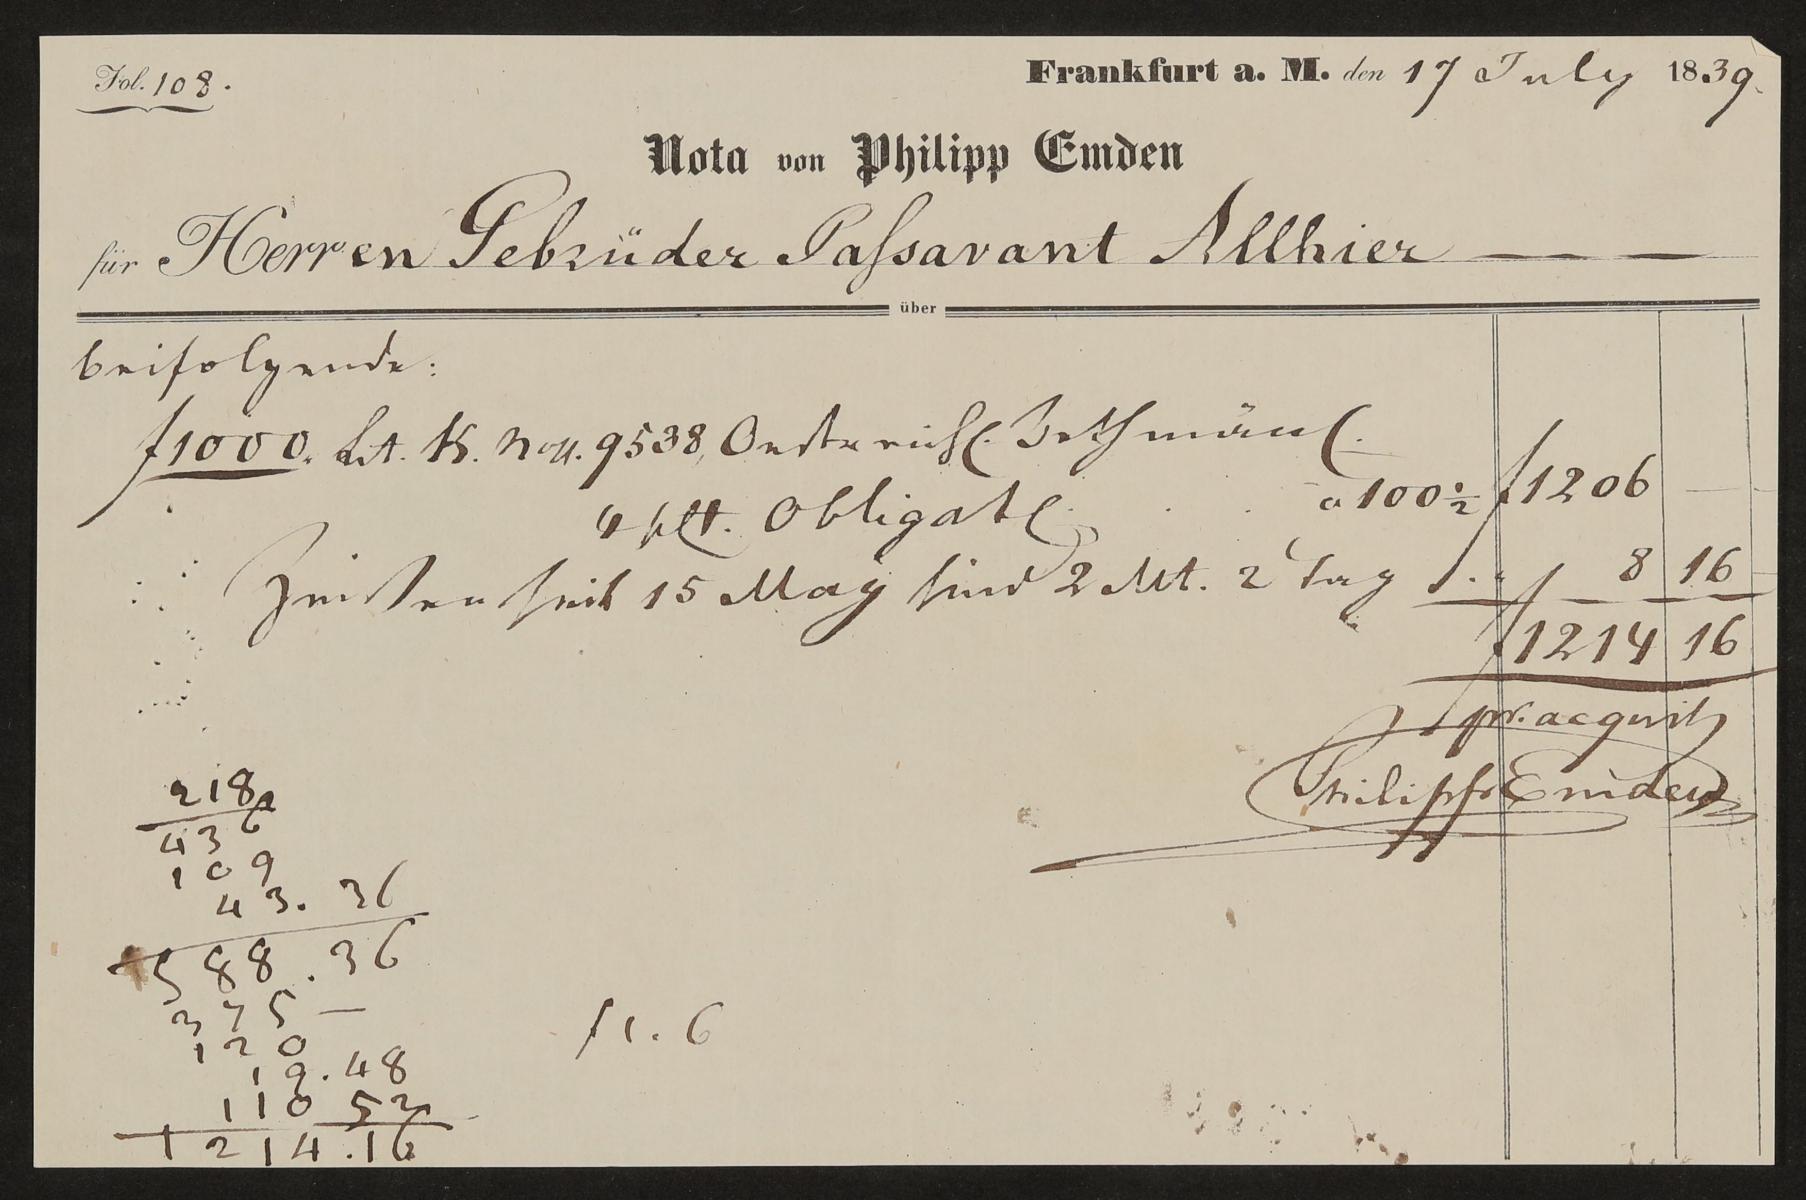 Fol. 108.
Frankfurt a. M. den 17 July 1839.
Nota von Philipp Emden
für Herren Gebrüder Paſsavant Allhier
über
beifolgende:
f 1000. Lit. K. No. 9538, Oesterreich. Bethmän.
4 pCt. Obligat. a 100½ f 1206 —
Zinsen seit 15 May sind 2 Mt. 2 Tag 8 16
f 1214 16
pr. acquit
Philipp Emden
218
436
109
43. 36
588. 36
375 —
120
19. 48
110 52
1214. 16
f 1. 6